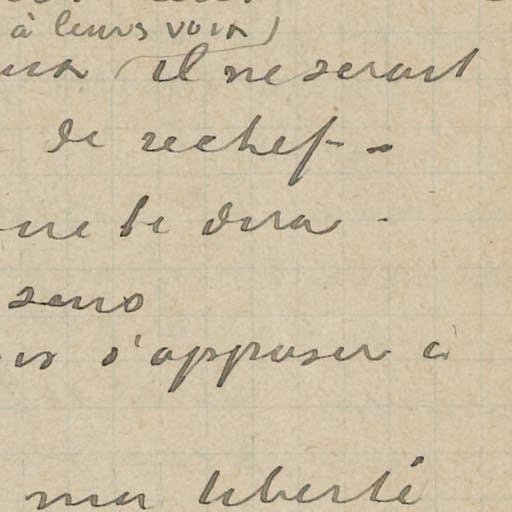 à leurs voix)
il ne serait
de rechef -
ne te dira -
sans
s'opposer à
ma liberté